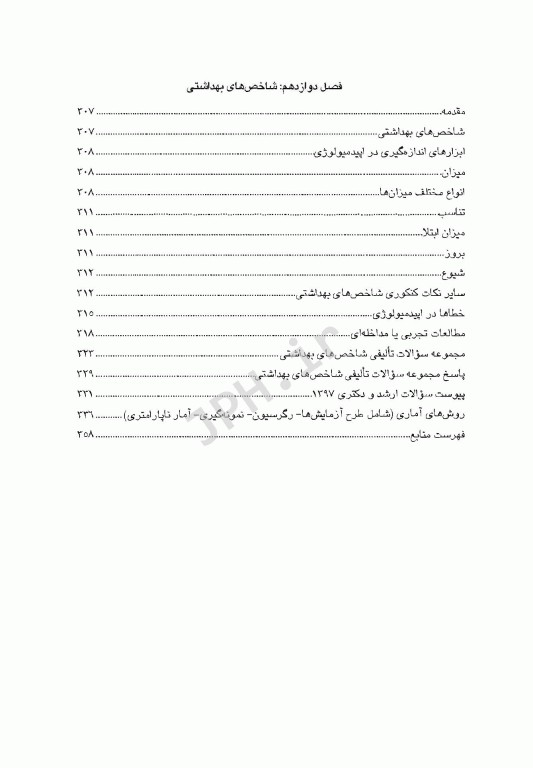 فصل دوازدهم: شاخص‌های بهداشتی
مقدمه ۳۰۷
شاخص‌های بهداشتی ۳۰۷
ابزارهای اندازه‌گیری در اپیدمیولوژی ۳۰۸
میزان ۳۰۸
انواع مختلف میزان‌ها ۳۰۸
تناسب ۳۱۱
میزان ابتلا ۳۱۱
بروز ۳۱۱
شیوع ۳۱۲
سایر نکات کنکوری شاخص‌های بهداشتی ۳۱۲
خطاها در اپیدمیولوژی ۳۱۵
مطالعات تجربی یا مداخله‌ای ۳۱۸
مجموعه سؤالات تألیفی شاخص‌های بهداشتی ۳۲۳
پاسخ مجموعه سؤالات تألیفی شاخص‌های بهداشتی ۳۲۹
پیوست سؤالات ارشد و دکتری ۱۳۹۷ ۳۳۱
روش‌های آماری (شامل طرح آزمایش‌ها- رگرسیون- نمونه‌گیری- آمار ناپارامتری) ۳۳۶
فهرست منابع ۳۵۸
JPH.ir